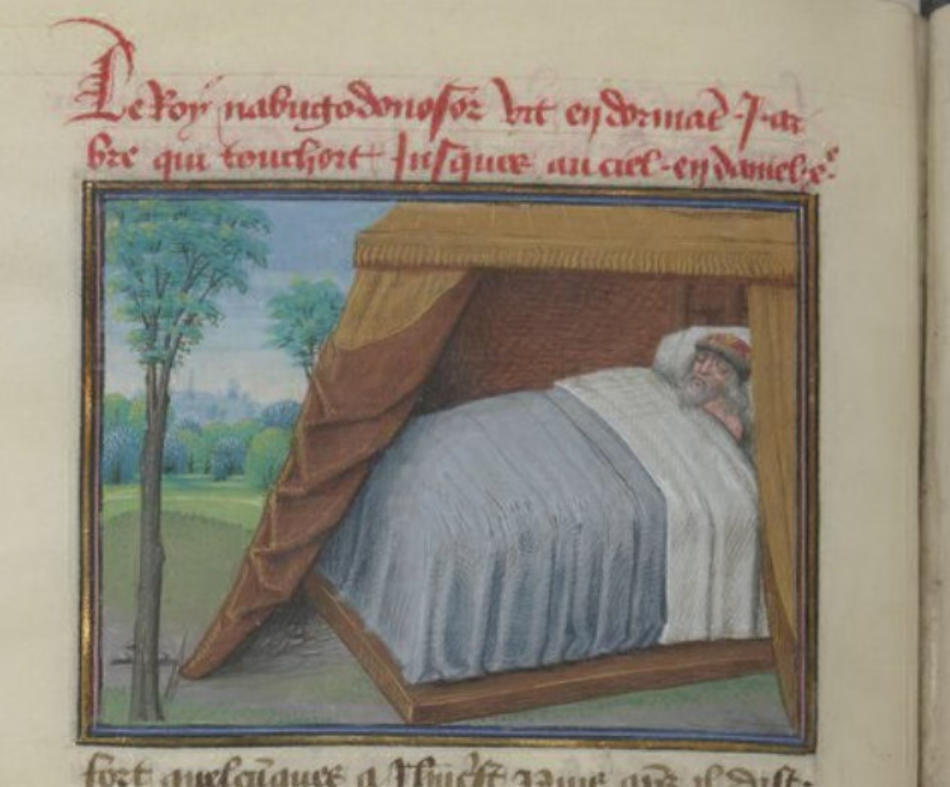 Le Roy nabugodonosor vit en dormāt ·j· ar
bre qui touchoit jusques au ciel · en daniel
fort quelcūques